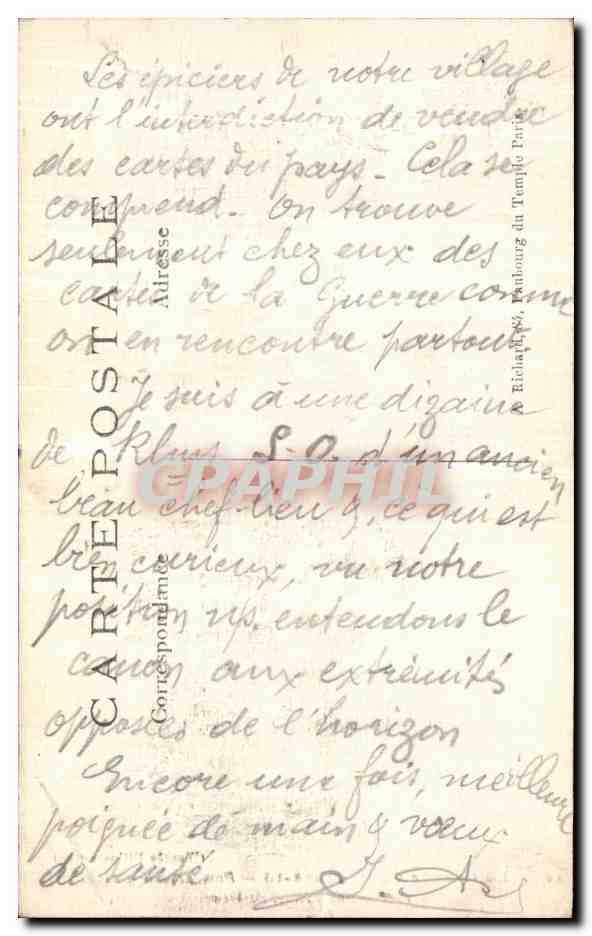 Les épiciers de notre village
ont l'interdiction de vendre
des cartes du pays - Cela se
comprend - On trouve
seulement chez eux des
cartes de la Guerre comme
on en rencontre partout.
Je suis à une dizaine
de klms S.O. d'un ancien
beau chef lieu &, ce qui est
bien curieux, vu notre
position ns. entendons le
canon aux extrémités
opposées de l'horizon
Encore une fois, meilleure
poignée de main & vœux
de santé.
CARTE POSTALE
Correspondance
Adresse
Richard, 84, Faubourg du Temple Paris
CPARPHIL